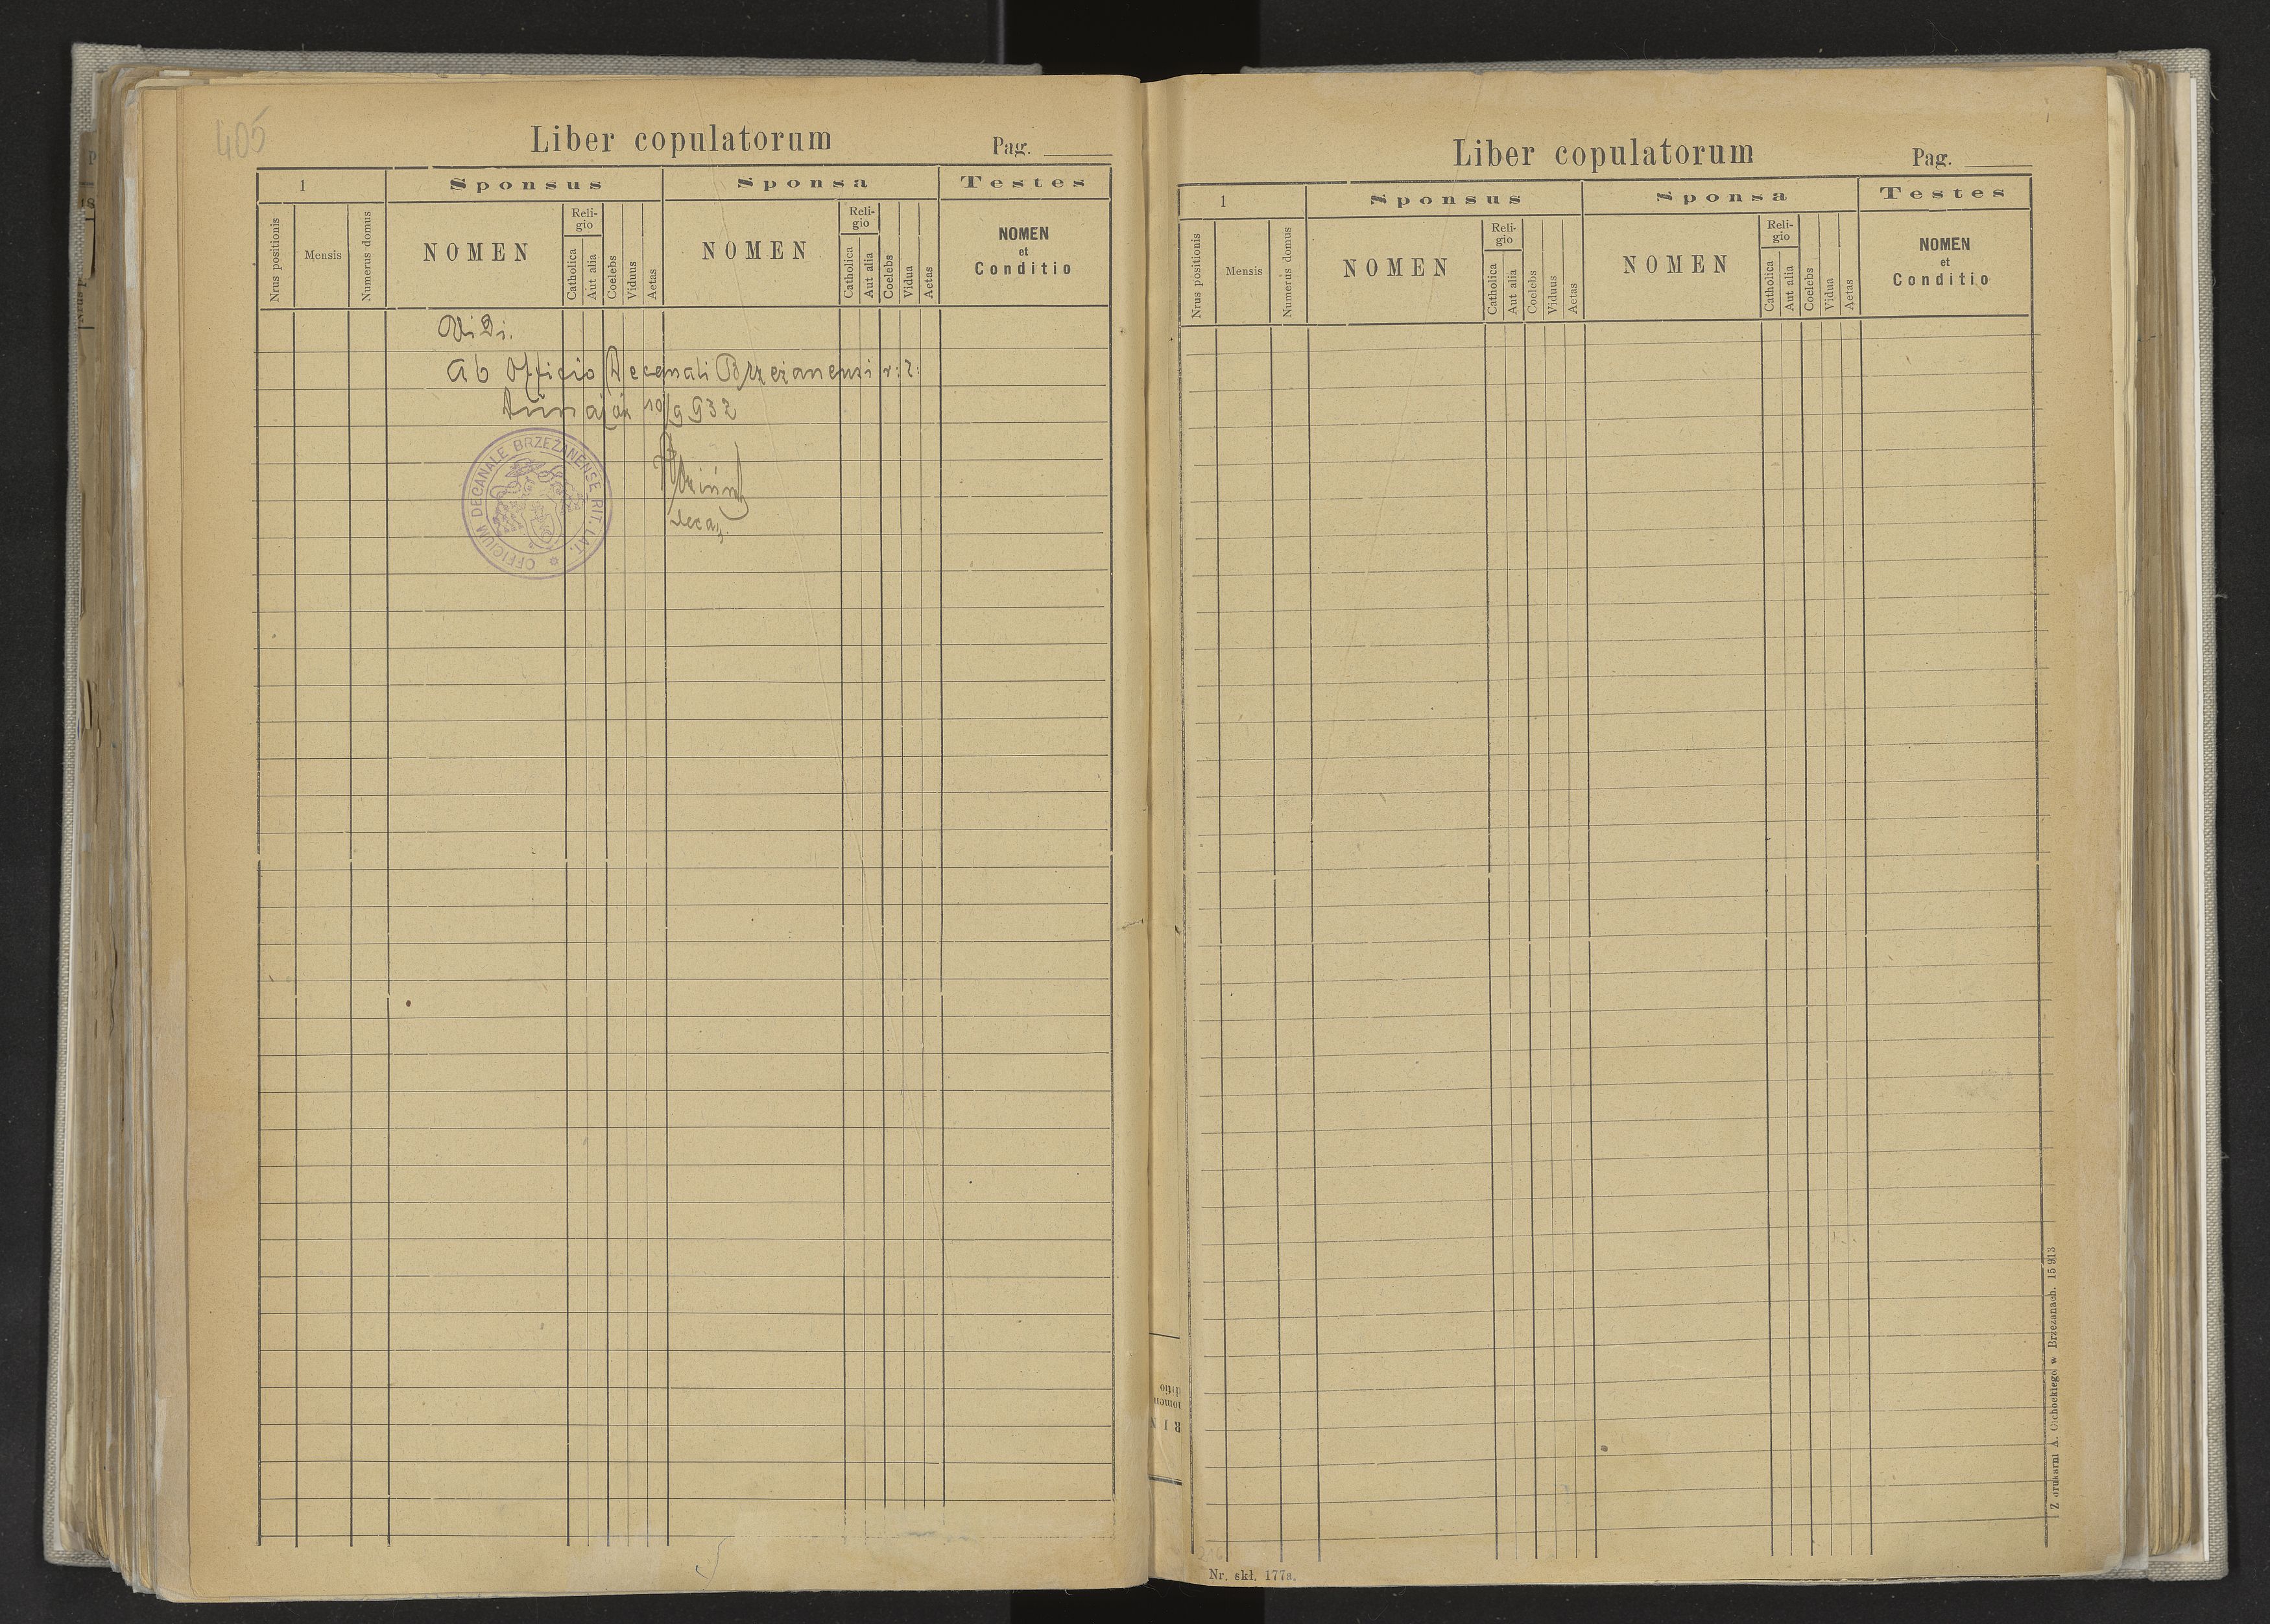 405
Liber copulatorum
Pag.
1
Sponsus
Sponsa
Testes
Nrus positionis
Mensis
Numerus domus
NOMEN
Reli-
gio
Catholica
Aut alia
Coelebs
Viduus
Aetas
NOMEN
Reli-
gio
Catholica
Aut alia
Coelebs
Vidua
Aetas
NOMEN
et
Conditio
Vidi.
Ab Officio Decanali Brzeżanensi r: l:
10/9 932
OFFICIUM DECANALE BRZEŻANENSE RIT. LAT.
Liber copulatorum
Pag.
1
Sponsus
Sponsa
Testes
Nrus positionis
Mensis
Numerus domus
NOMEN
Reli-
gio
Catholica
Aut alia
Coelebs
Viduus
Aetas
NOMEN
Reli-
gio
Catholica
Aut alia
Coelebs
Vidua
Aetas
NOMEN
et
Conditio
Z drukarni A. w Brzeżanach. 15 913
Nr. skł. 177a.